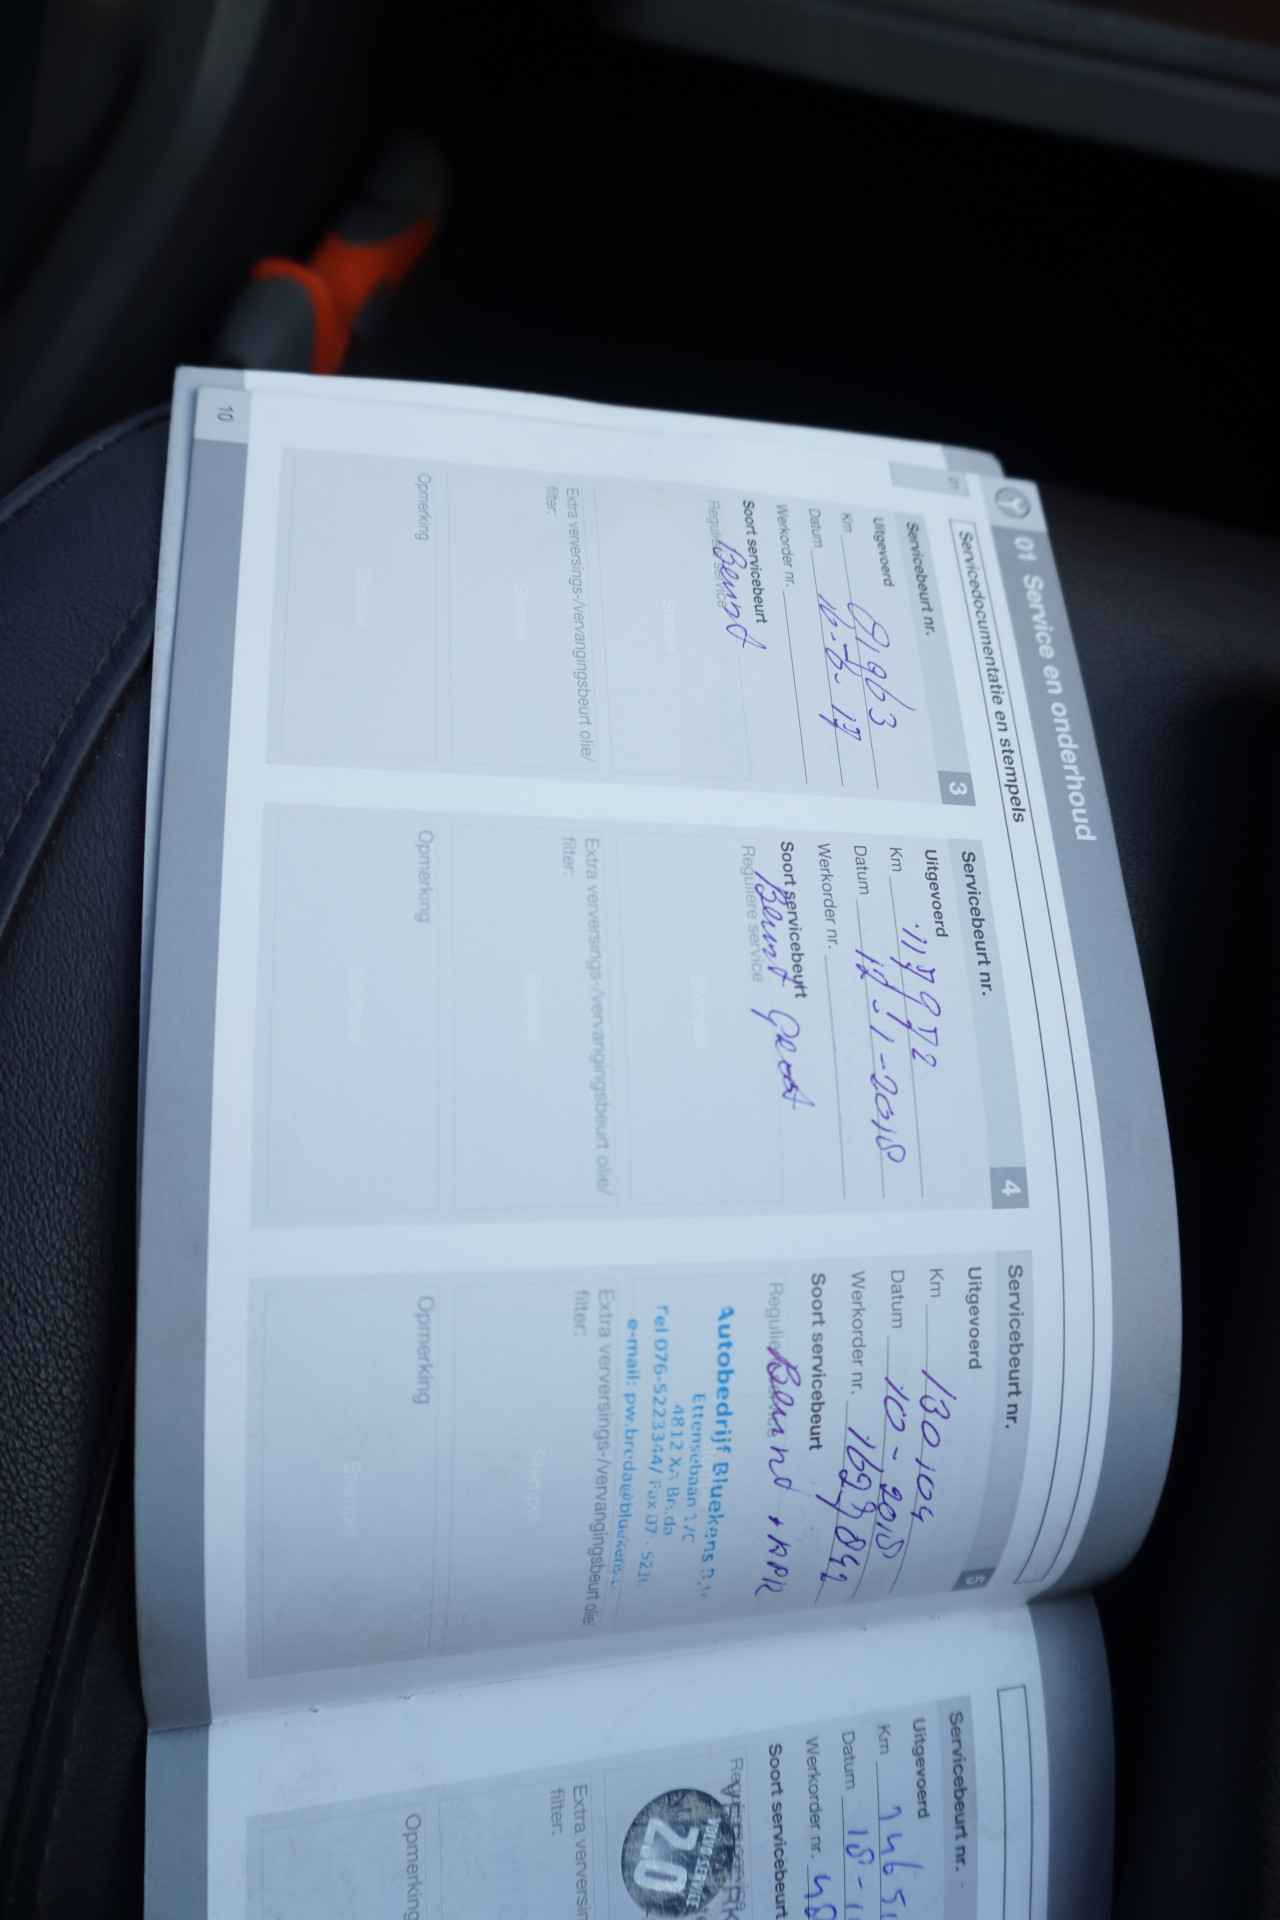 01 Service en onderhoud
Servicedocumentatie en stempels
01
Servicebeurt nr. 3
Uitgevoerd
Km
Datum
Werkorder nr.
Soort servicebeurt
Reguliere service
Beurt
Extra verversings-/vervangingsbeurt olie/
filter:
Opmerking
Servicebeurt nr. 4
Uitgevoerd
Km
Datum 12-1-2018
Werkorder nr.
Soort servicebeurt
Reguliere service
Beurt Groot
Extra verversings-/vervangingsbeurt olie/
filter:
Opmerking
Servicebeurt nr. 5
Uitgevoerd
Km 130104
Datum 10-2018
Werkorder nr.
Soort servicebeurt
Beurt + APK
Autobedrijf Bluekens
Ettensebaan 17C
4812 XA Breda
Tel 076-5223344/ Fax
e-mail:
Extra verversings-/vervangingsbeurt olie/
filter:
Stempel
Opmerking
Stempel
10
Servicebeurt nr.
Uitgevoerd
Km
Datum 18-
Werkorder nr.
Soort servicebeurt
VOLVO SERVICE
2.0
Extra verversin
filter:
Opmerking